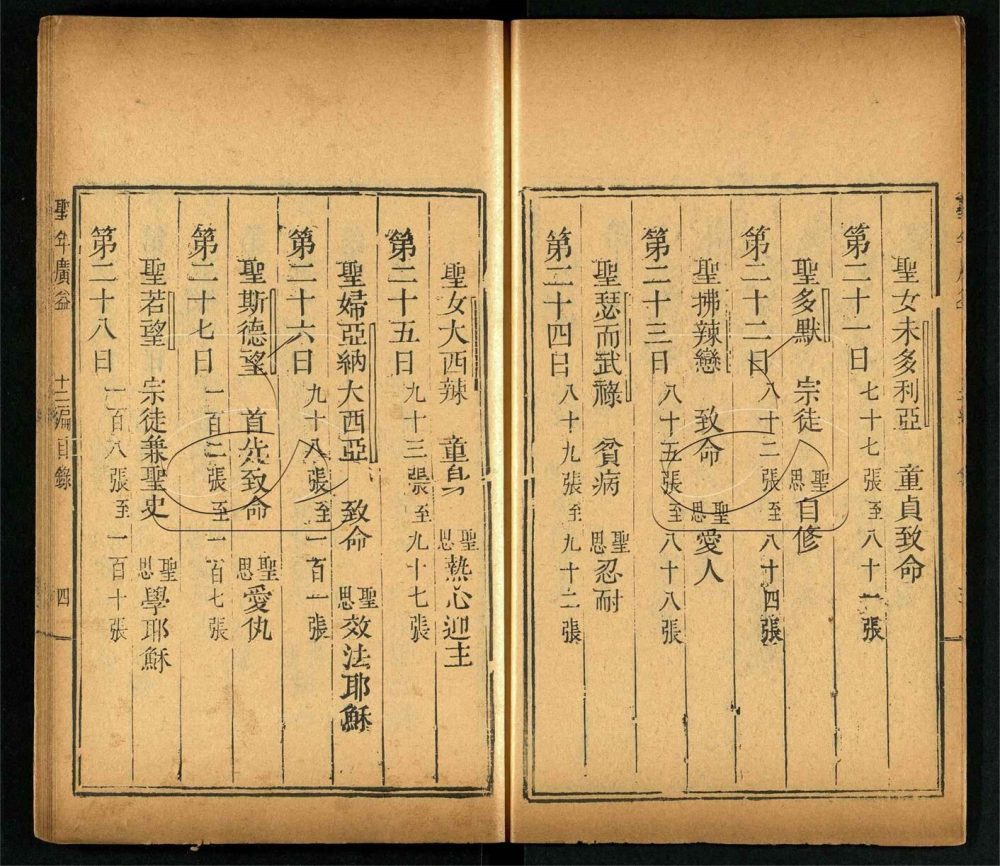 聖女未多利亞 童貞致命
第二十一日 七十七張至八十一張
聖多默 宗徒 聖思自修
第二十二日 八十二張至八十四張
聖拂辣戀 致命 聖思愛人
第二十三日 八十五張至八十八張
聖瑟而武祿 貧病 聖思忍耐
第二十四日 八十九張至九十二張
聖女大西辣 童身 聖思熱心迎主
第二十五日 九十三張至九十七張
聖婦亞納大西亞 致命 聖思效法耶穌
第二十六日 九十八張至一百一張
聖斯德望 首先致命 聖思愛仇
第二十七日 一百二張至一百七張
聖若望 宗徒兼聖史 聖思學耶穌
第二十八日 一百八張至一百十張
聖年廣益 十二編目錄 四